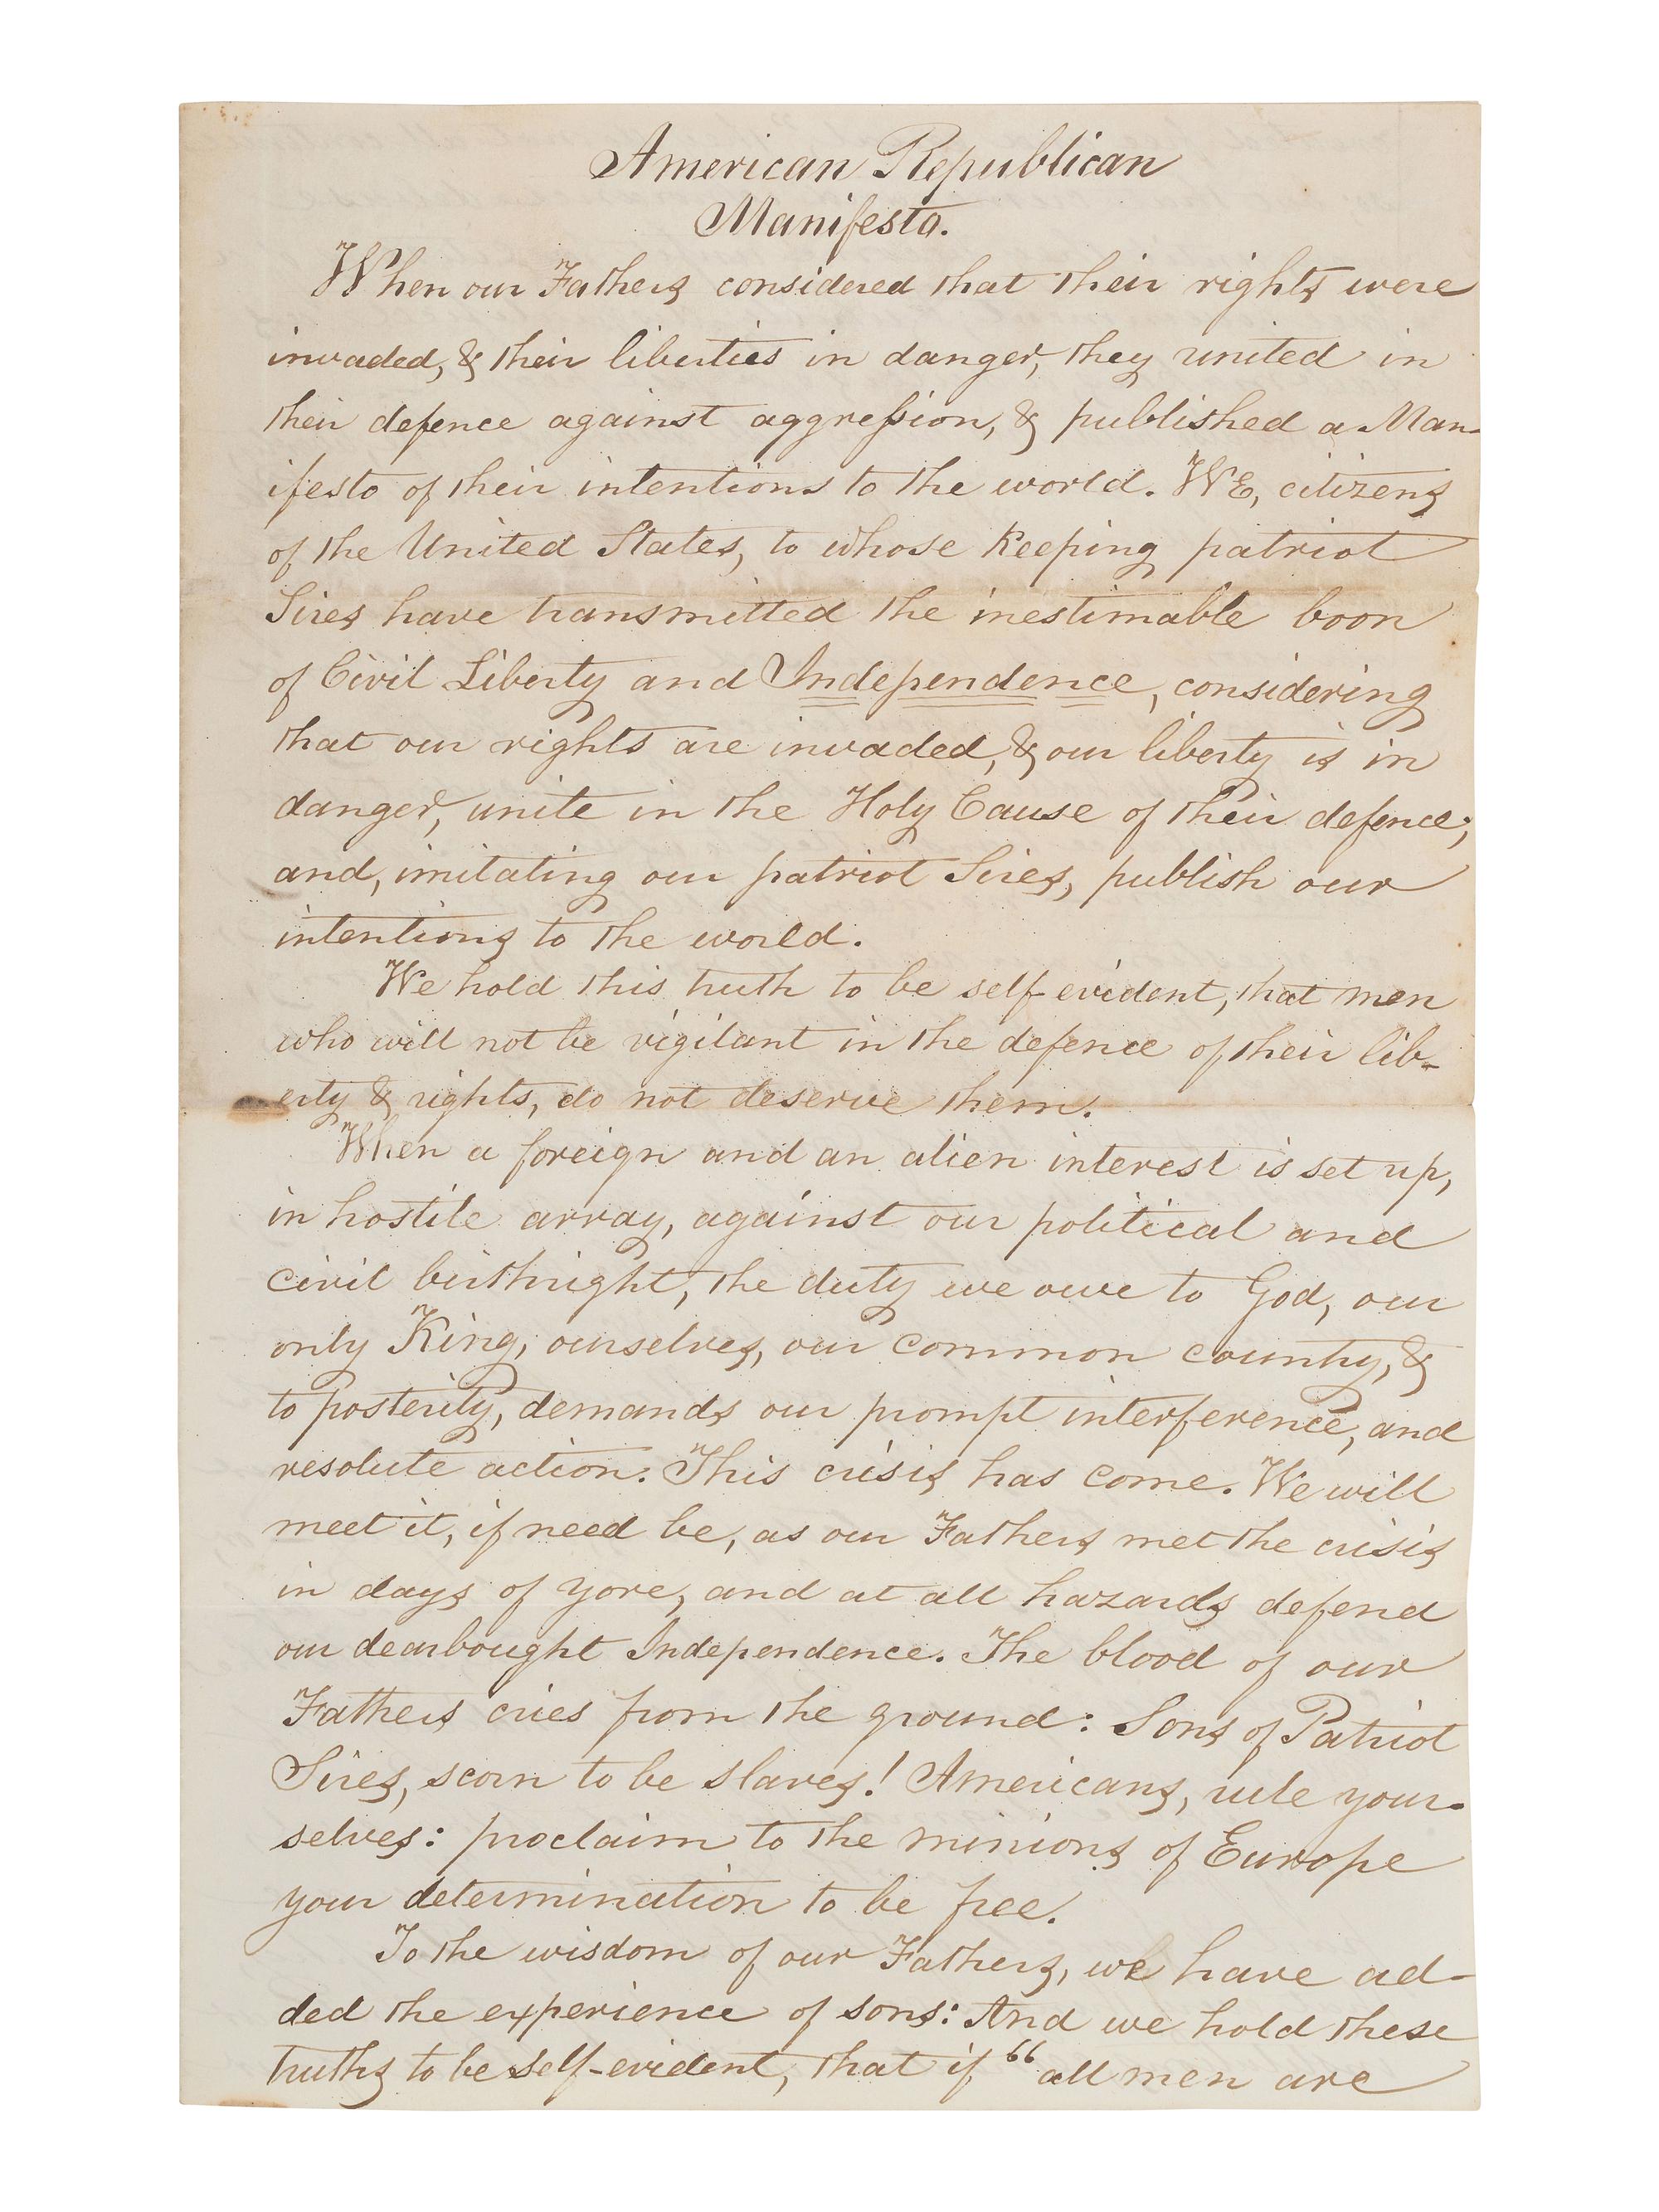 American Republican
Manifesto.
When our Fathers considered that their rights were
invaded, & their liberties in danger, they united in
their defence against aggression, & published a Man-
ifesto of their intentions to the world. WE, citizens
of the United States, to whose keeping patriot
Sires have transmitted the inestimable boon
of Civil Liberty and Independence, considering
that our rights are invaded, & our liberty is in
danger, unite in the Holy Cause of their defence;
and, imitating our patriot Sires, publish our
intentions to the world.
We hold this truth to be self-evident, that men
who will not be vigilant in the defence of their lib-
erty & rights, do not deserve them.
When a foreign and an alien interest is set up,
in hostile array, against our political and
civil birthright, the duty we owe to God, our
only King, ourselves, our common country, &
to posterity, demands our prompt interference, and
resolute action. This crisis has come. We will
meet it, if need be, as our Fathers met the crisis
in days of yore, and at all hazards defend
our dearbought Independence. The blood of our
Fathers cries from the ground: Sons of Patriot
Sires, scorn to be slaves! Americans, rule your-
selves: proclaim to the minions of Europe
your determination to be free.
To the wisdom of our Fathers, we have ad-
ded the experience of sons: And we hold these
truths to be self-evident, that if "all men are